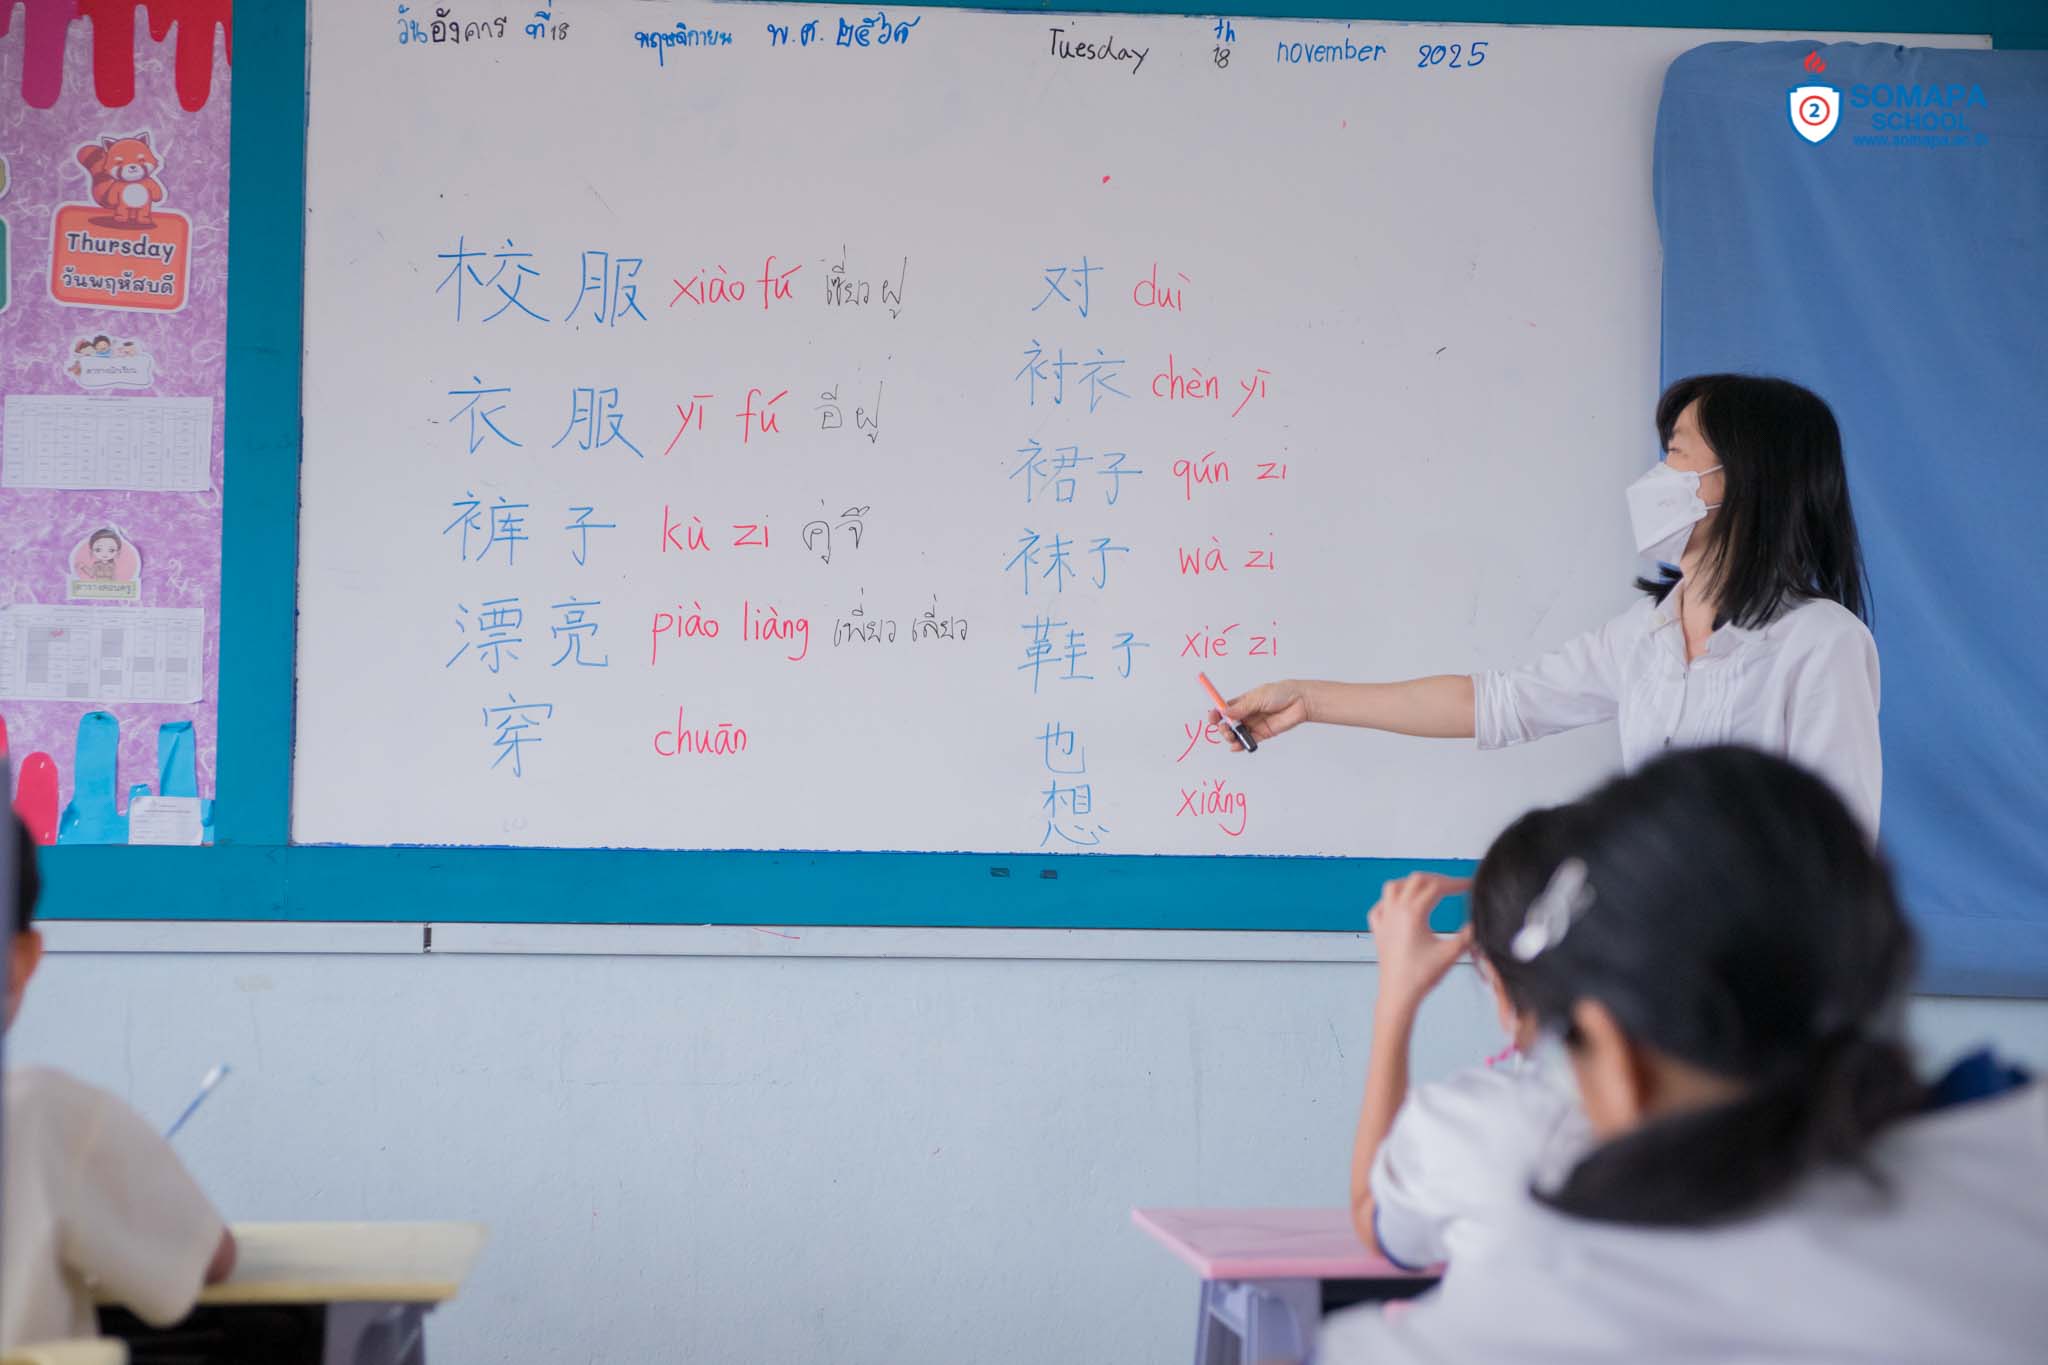 วันอังคาร ที่ 18 พฤศจิกายน พ.ศ. ๒๕๖๘ Tuesday 18th november 2025
SOMAPA
SCHOOL
www.somapa.ac.th
2
Thursday
วันพฤหัสบดี
ตารางสอนครู
校服 xiào fú เซี่ยว ฝู
衣服 yī fú อี ฝู
裤子 kù zi คู่ จึ
漂亮 piào liàng เพี่ยว เลี่ยว
穿 chuān
对 duì
衬衣 chèn yī
裙子 qún zi
袜子 wà zi
鞋子 xié zi
也
想 xiǎng